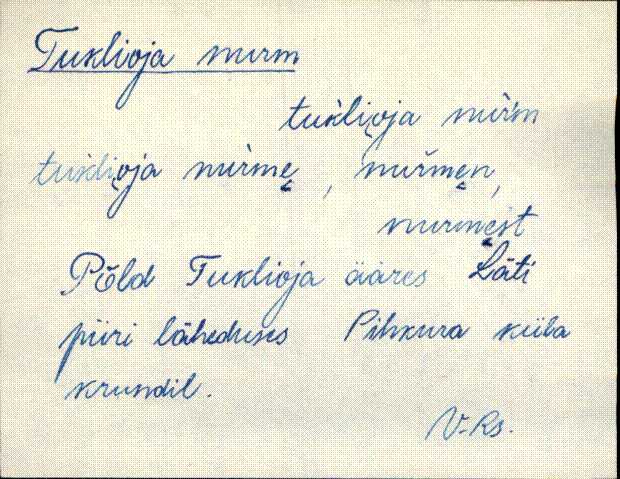 Tuklioja nurm
tuk̀li̮oja nùr̀m
tuk̀li̮oja nùrmę, nuŕmęn,
nurmęist
Põld Tuklioja ääres Läti
piiri läheduses Pihkura küla
krundil.
V.Rs.